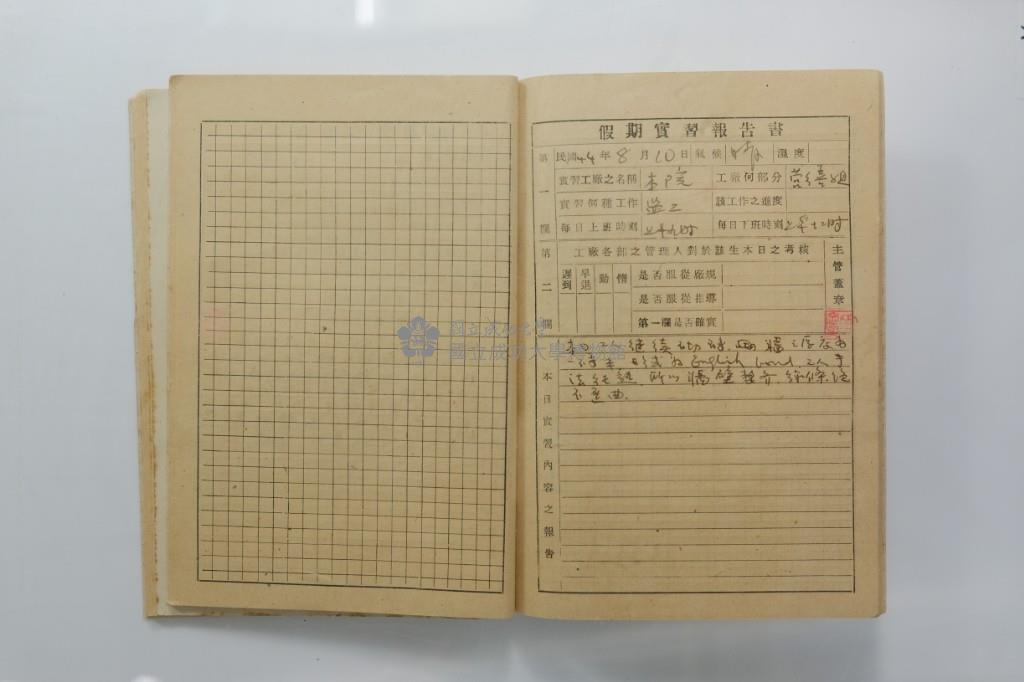 假期實習報告書
第一欄
民國44年8月10日 氣候 晴 溫度
實習工廠之名稱 本院 工廠何部分 營繕組
實習何種工作 監工 該工作之進度
每日上班時刻 上午九時 每日下班時刻 上午十二時
第二欄
工廠各部之管理人對於該生本日之考核
主管蓋章
遲到 早退 勤 惰
是否服從廠規
是否服從指導
第一欄是否確實
本日實習內容之報告
繼續砌磚
English bond
所以牆壁整齊
不歪曲.
國立成功大學
國立成功大學博物館